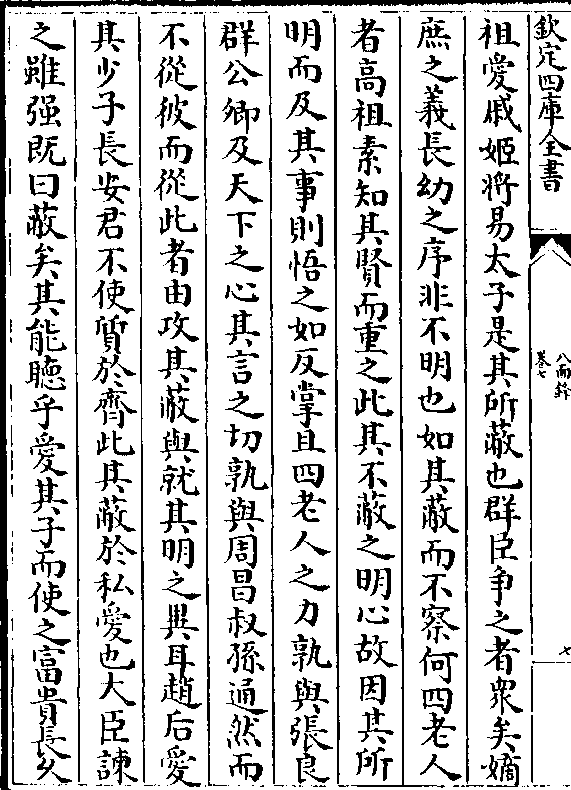 欽定四庫全書
八面鋒
卷七
七
祖愛戚姬將易太子是其所蔽也群臣爭之者衆矣嫡
庶之義長幼之序非不明也如其蔽而不察何四老人
者高祖素知其賢而重之此其不蔽之明心故因其所
明而及其事則悟之如反掌且四老人之力孰與張良
群公卿及天下之心其言之切孰與周昌叔孫通然而
不從彼而從此者由攻其蔽與就其明之異耳趙后愛
其少子長安君不使質於齊此其蔽於私愛也大臣諫
之雖强既曰蔽矣其能聽乎愛其子而使之富貴長久